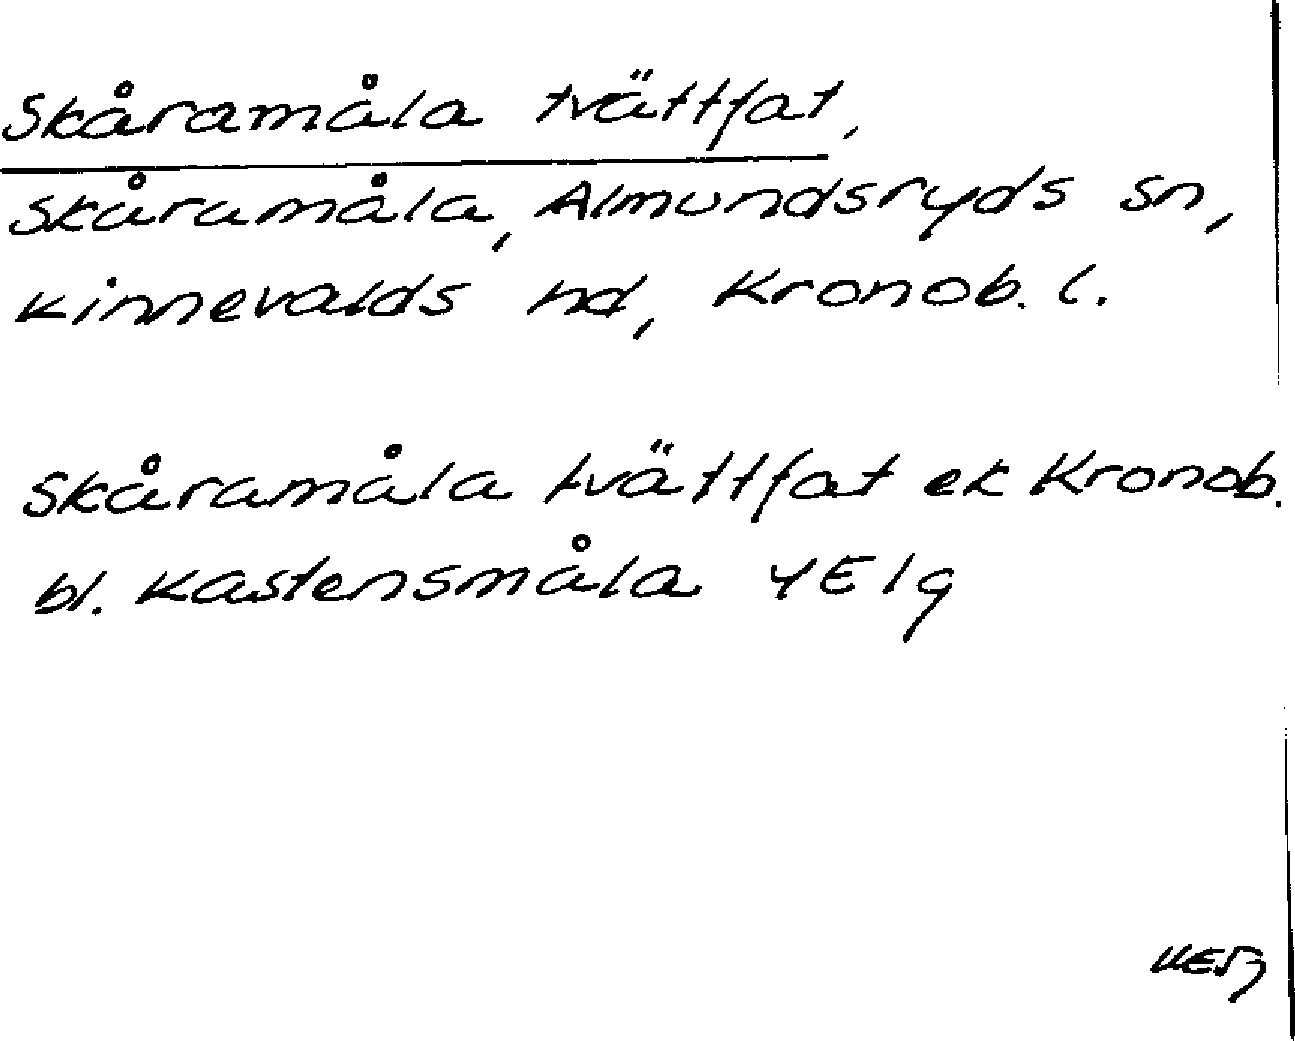 Skåramåla tvättfat,
Skåramåla, Almundsryds sn,
Kinnevalds hd, Kronob. l.
Skåramåla tvättfat ek Kronob.
bl. Kastensmåla 4E1g